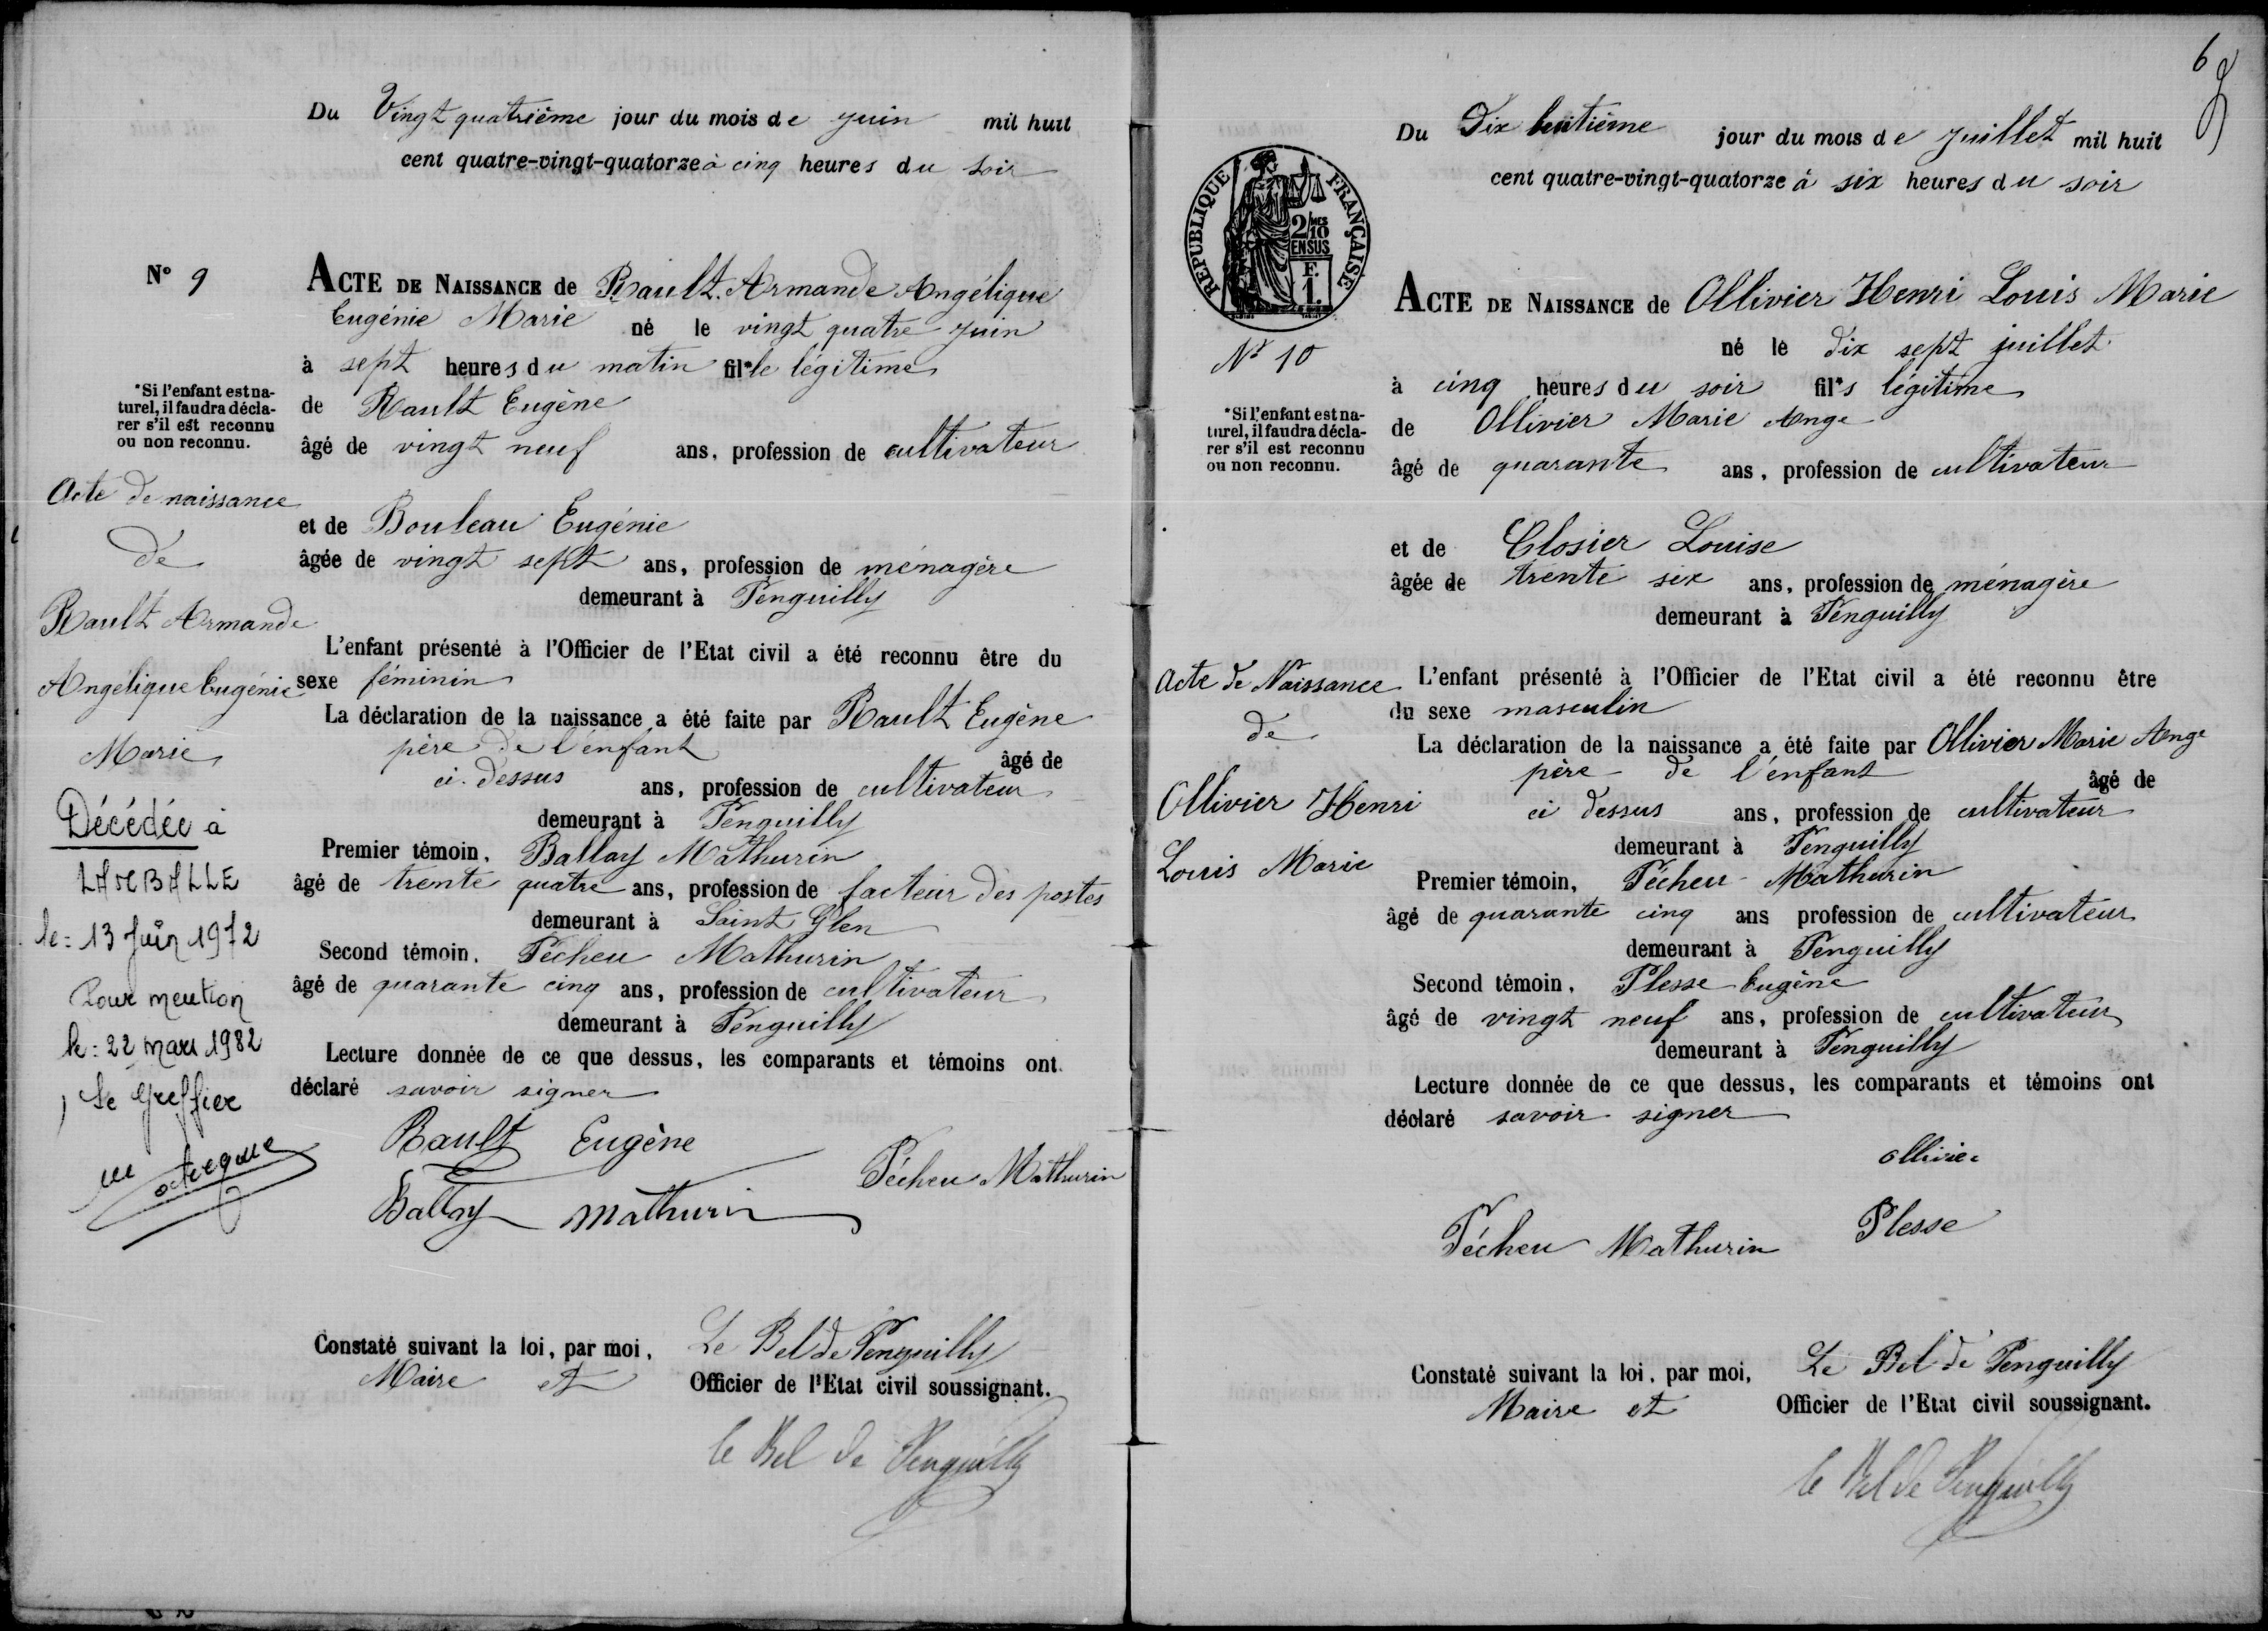 Du Vingt quatrième jour du mois de juin mil huit
cent quatre-vingt-quatorze à cinq heures du soir
N° 9
ACTE DE NAISSANCE de Rault Armande Angélique
Eugénie Marie né le vingt quatre juin
à sept heures du matin fil*le légitime
*Si l'enfant est na-
turel, il faudra décla-
rer s'il est reconnu
ou non reconnu.
de Rault Eugène
âgé de vingt neuf ans, profession de cultivateur
et de Bouleau Eugénie
âgée de vingt sept ans, profession de ménagère
demeurant à Penguilly
L'enfant présenté à l'Officier de l'Etat civil a été reconnu être du
sexe féminin
La déclaration de la naissance a été faite par Rault Eugène
père de l'enfant âgé de
ci-dessus ans, profession de cultivateur
demeurant à Penguilly
Premier témoin, Ballay Mathurin
âgé de trente quatre ans, profession de facteur des postes
demeurant à Saint Glen
Second témoin, Pécheu Mathurin
âgé de quarante cinq ans, profession de cultivateur
demeurant à Penguilly
Lecture donnée de ce que dessus, les comparants et témoins ont
déclaré savoir signer
Rault Eugène
Pécheu Mathurin
Ballay Mathurin
Constaté suivant la loi, par moi, Le Bel de Penguilly
Maire et Officier de l'Etat civil soussignant.
le Bel de Penguilly
Acte de naissance
de
Rault Armande
Angélique Eugénie
Marie
Décédée à
LAMBALLE
le : 13 Juin 1972
Pour mention
le : 22 mars 1982
Le Greffier
6
Du Dix huitième jour du mois de juillet mil huit
cent quatre-vingt-quatorze à six heures du soir
REPUBLIQUE FRANÇAISE
2/10MES
EN SUS
F.
1.
N° 10
ACTE DE NAISSANCE de Ollivier Henri Louis Marie
né le dix sept juillet
à cinq heures du soir fil*s légitime
*Si l'enfant est na-
turel, il faudra décla-
rer s'il est reconnu
ou non reconnu.
de Ollivier Marie Ange
âgé de quarante ans, profession de cultivateur
et de Closier Louise
âgée de trente six ans, profession de ménagère
demeurant à Penguilly
L'enfant présenté à l'Officier de l'Etat civil a été reconnu être
du sexe masculin
La déclaration de la naissance a été faite par Ollivier Marie Ange
père de l'enfant âgé de
ci dessus ans, profession de cultivateur
demeurant à Penguilly
Premier témoin, Pécheu Mathurin
âgé de quarante cinq ans profession de cultivateur
demeurant à Penguilly
Second témoin, Plesse Eugène
âgé de vingt neuf ans, profession de cultivateur
demeurant à Penguilly
Lecture donnée de ce que dessus, les comparants et témoins ont
déclaré savoir signer
Ollivier
Pécheu Mathurin Plesse
Constaté suivant la loi, par moi, Le Bel de Penguilly
Maire et Officier de l'Etat civil soussignant.
le Bel de Penguilly
Acte de Naissance
de
Ollivier Henri
Louis Marie